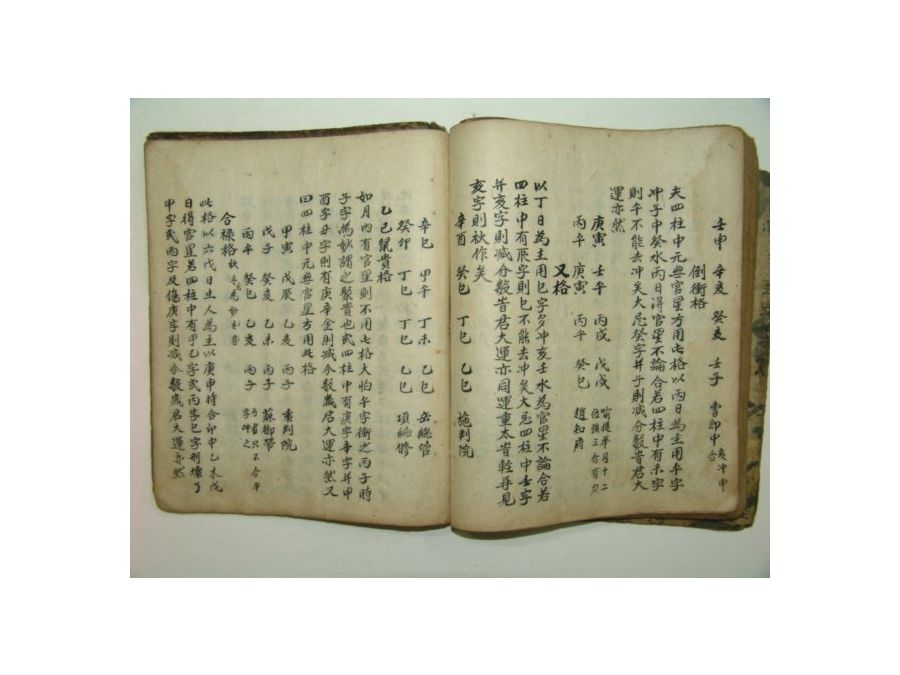 壬申 辛亥 癸亥 壬子 曹郎中
倒衝格
夫四柱中元無官星方用此格以丙日為主用午字
冲子中癸水丙日得官星不論合若四柱中有未字
則午不能去冲矣大忌癸字并子則減分数歲君大
運亦然
庚寅 壬午 丙戌 戊戌
丙午 庚寅 丙午 癸巳 趙知府
又格
以丁日為主用巳字多冲亥壬水為官星不論合若
四柱中有辰字則巳不能去冲矣大忌四柱中壬字
并亥字則減分数歲君大運亦同運重太歲輕再見
亥字則秋作矣
辛酉 癸巳 丁巳 乙巳 施判院
辛巳 甲午 丁未 乙巳 岳總管
癸卯 丁巳 丁巳 乙巳 項
乙巳鼠貴格
如月內有官星則不用此格大怕午字衝之丙子時
子字為妙謂之聚貴也或四柱中有庚字辛字并申
酉字丑字則有庚辛金則減分数歲君大運亦然又
曰四柱中元無官星方用此格
甲寅 戊辰 乙亥 丙子 判院
戊子 癸亥 乙未 丙子 蘇
丙午 癸巳 乙亥 丙子
合祿格
此格以六戊日生人為主以庚申時合卯中乙木戊
日得官星若四柱中有甲乙字或丙字巳字刑壞了
申字或丙字及傷庚字則減分数歲君大運亦然